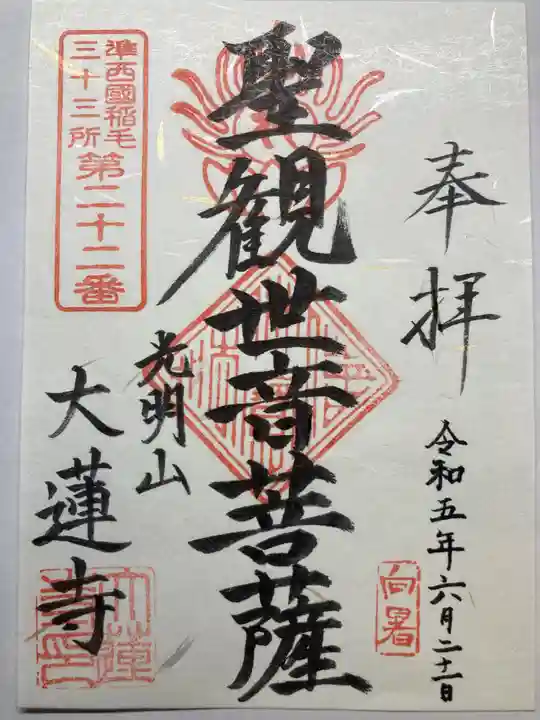 奉拝
令和五年六月二十二日
向暑
聖観世音菩薩
光明山
大蓮寺
準西國稲毛
三十三所 第二十二番